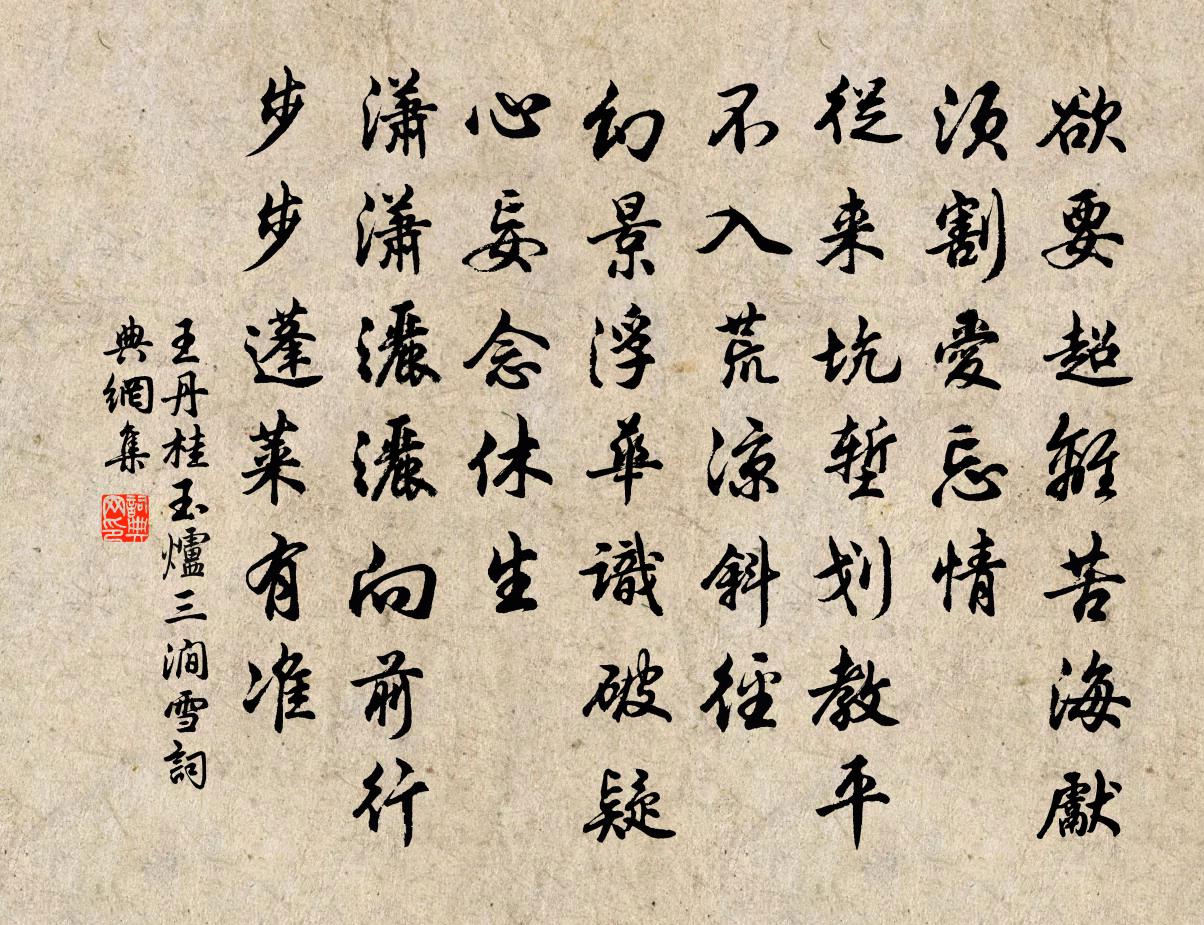 欲要超離苦海獻
須割愛忘情
從来坑塹划教平
不入荒涼斜徑
幻景浮華識破疑
心妄念休生
瀟瀟灑灑向前行
步步蓬萊有准
王丹桂玉爐三澗雪詞
典網集
詞典
网印